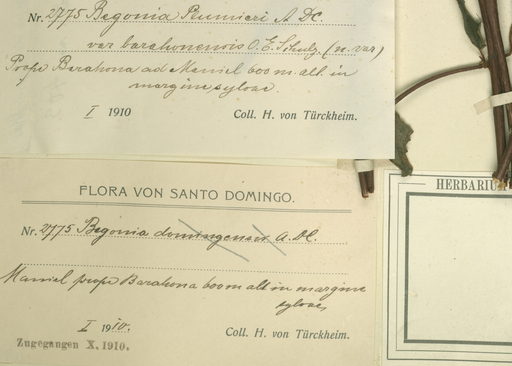 Nr. 2775 Begonia Plumieri A DC.
var barahonensis O. E. Schulz. (n. var)
Prope Barahona ad Maniel 600 m. alt. in
margine sylvae.
I 1910 Coll. H. von Türckheim.
FLORA VON SANTO DOMINGO.
Nr. 2775 Begonia domingensis A. DC.
Maniel prope Barahona 600 m alt in margine
sylvae,
I 1910. Coll. H. von Türckheim.
Zugegangen X. 1910.
HERBARIU